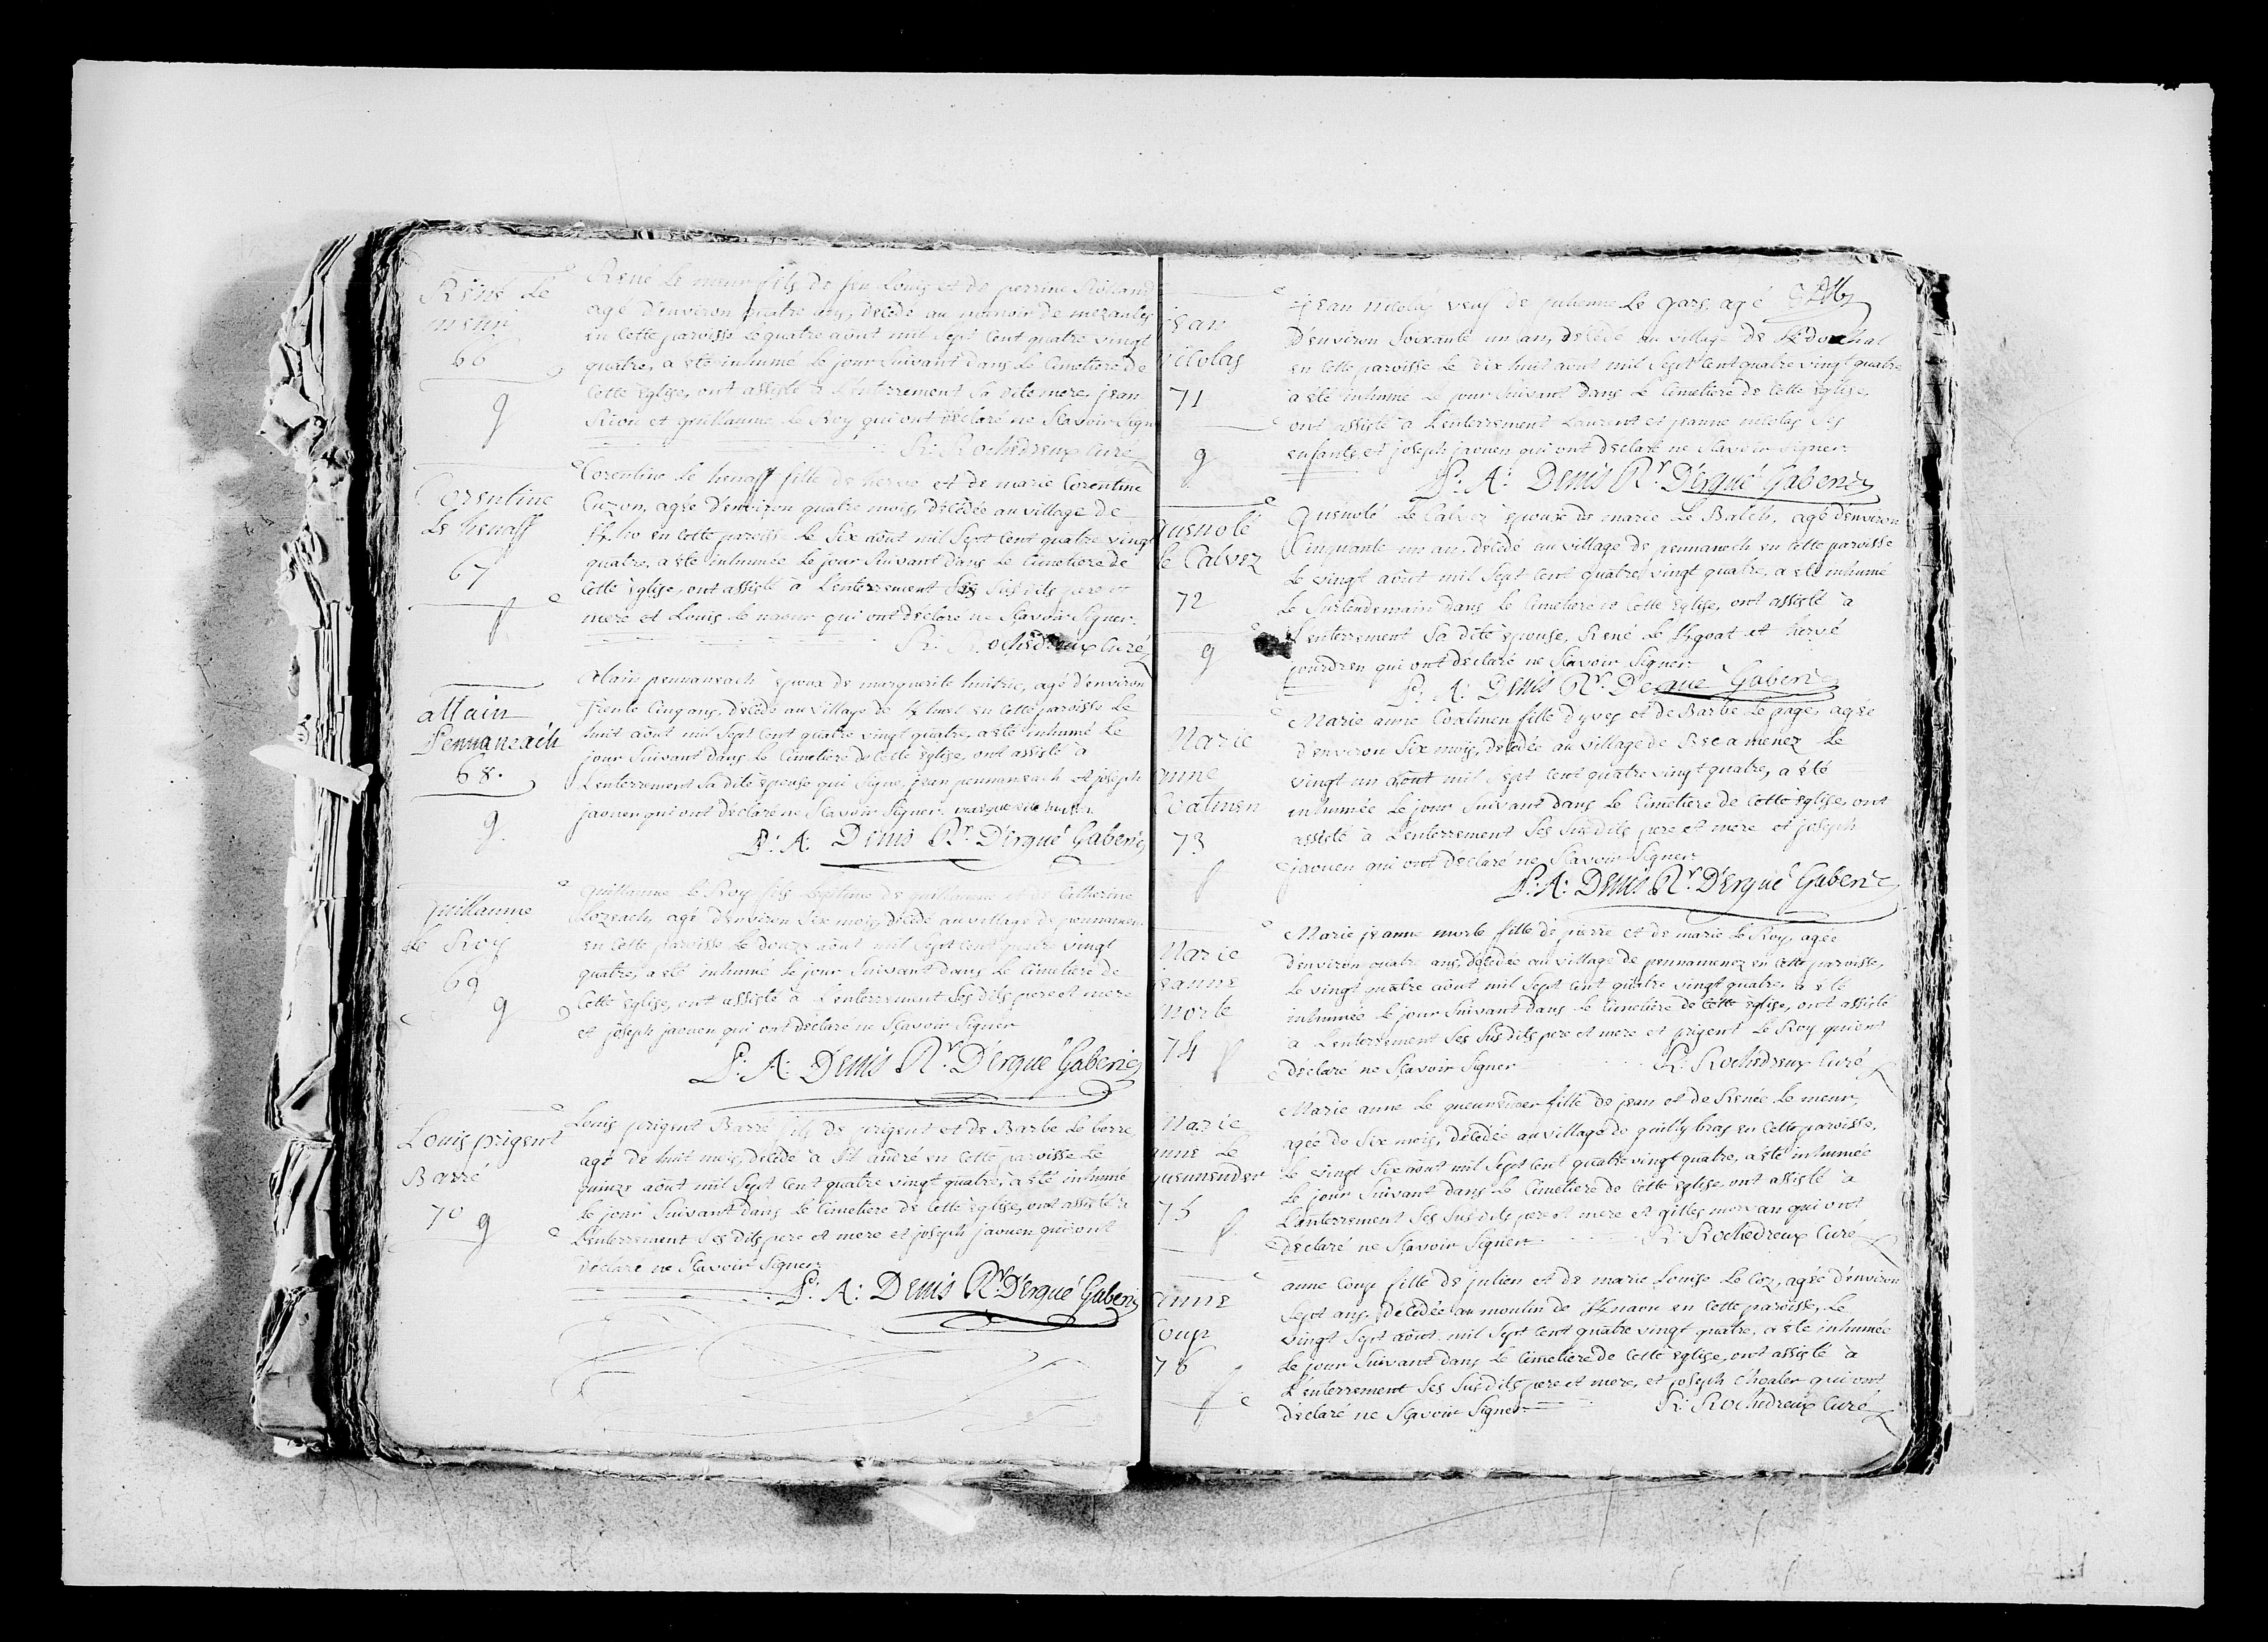 René Le
meur
66
g
René Le meur fils de feu Louis et de perrine Rolland
agé d'environ quatre ans, décédé au manoir de mezanles
en cette paroisse Le quatre août mil Sept cent quatre vingt
quatre, a été inhumé Le jour Suivant dans Le Cimetiere de
Cette Eglise, ont assisté à L'enterrement Sa dite mere, jean
Riou et guillaume Le Roy qui ont déclaré ne Sçavoir Signer
R. Rochedreux Curé
Corentine
Le henaff
67
f
Corentine Le henaff fille de hervé et de marie Corentine
Cuzon, agée d'environ quatre mois, décédée au village de
en cette paroisse Le Six août mil Sept cent quatre vingt
quatre, a été inhumée Le jour Suivant dans Le Cimetiere de
Cette Eglise, ont assisté à L'enterrement Ses Susdits pere et
mere et Louis Le naour qui ont déclaré ne Sçavoir Signer.
R. Rochedreux Curé
allain
Pennaneach
68.
g.
Alain pennaneach époux de marguerite huitric, agé d'environ
trente Cinq ans, décédé au village de en cette paroisse Le
huit août mil Sept cent quatre vingt quatre, a été inhumé Le
jour Suivant dans Le Cimetiere de cette Eglise, ont assisté à
L'enterrement Sa dite Epouse qui Signe, jean pennaneach et joseph
jaouen qui ont déclaré ne Sçavoir Signer. marguerite huitric
P. A. Denis Rr. D'Ergué Gaberic
guillaume
Le Roy
69
g
Guillaume Le Roy fils Légitime de guillaume et de Catherine
Rozeach, agé d'environ Six mois, décédé au village de pennamenez
en cette paroisse Le douze août mil Sept cent quatre vingt
quatre, a été inhumé Le jour Suivant dans Le Cimetiere de
Cette Eglise, ont assisté à L'enterrement Ses dits pere et mere
et joseph jaouen qui ont déclaré ne Sçavoir Signer
P. A. Denis Rr. D'Ergué Gaberic
Louis prigent
Barré
70
g
Louis prigent Barré fils de prigent et de Barbe Le berre,
agé de huit mois, décédé à St. André en cette paroisse Le
quinze août mil Sept cent quatre vingt quatre, a été inhumé
Le jour Suivant dans Le Cimetiere de cette Eglise, ont assisté à
L'enterrement Ses dits pere et mere et joseph jaouen qui ont
déclaré ne Sçavoir Signer
P. A. Denis Rr. D'Ergué Gaberic
jean
nicolas
71
g
Jean nicolas veuf de julienne Le Gars, agé
d'environ Soixante un an, décédé au village de
en cette paroisse Le dix huit août mil Sept cent quatre vingt quatre
a été inhumé Le jour Suivant dans Le Cimetiere de Cette Eglise,
ont assisté à L'enterrement Laurent et jeanne nicolas Ses
enfants, et joseph jaouen qui ont déclaré ne Sçavoir Signer
P. A. Denis Rr. D'Ergué Gaberic
guenolé
Le Calvez
72
g
Guenolé Le Calvez époux de marie Le Balch, agé d'environ
Cinquante un an, décédé au village de pennanech en cette paroisse
Le vingt août mil Sept cent quatre vingt quatre, a été inhumé
Le Surlendemain dans Le Cimetiere de Cette Eglise, ont assisté à
L'enterrement Sa dite épouse, René Le et hervé
jourdren qui ont déclaré ne Sçavoir Signer
P. A. Denis Rr. D'Ergué Gaberic
Marie
anne
Coatmen
73
f
Marie anne Coatmen fille d'yves et de Barbe Le page, agée
d'environ Six mois, décédée au village de Creamenez Le
vingt un août mil Sept cent quatre vingt quatre, a été
inhumée Le jour Suivant dans Le Cimetiere de Cette Eglise, ont
assisté à L'enterrement Ses Susdits pere et mere et joseph
jaouen qui ont déclaré ne Sçavoir Signer
P. A. Denis Rr. D'Ergué Gaberic
Marie
jeanne
morte
74
f
Marie jeanne morte fille de pierre et de marie Le Roy, agée
d'environ quatre ans, décédée au village de pennamenez en cette paroisse,
Le vingt quatre août mil Sept cent quatre vingt quatre, a été
inhumée Le jour Suivant dans Le Cimetiere de Cette Eglise, ont assisté
à L'enterrement Ses Susdits pere et mere et prigent Le Roy qui ont
déclaré ne Sçavoir Signer
R. Rochedreux Curé
Marie
anne Le
gueunender
75
f
Marie anne Le gueunender fille de jean et de Renée Le meur,
agée de Six mois, décédée au village de quilly bras en Cette paroisse,
Le vingt Six août mil Sept cent quatre vingt quatre, a été inhumée
Le jour Suivant dans Le Cimetiere de Cette Eglise, ont assisté à
L'enterrement Ses Susdits pere et mere et gilles morvan qui ont
déclaré ne Sçavoir Signer
R. Rochedreux Curé
anne
Coup
76
f
anne Coup fille de julien et de marie Louise Le Coz, agée d'environ
Sept ans, décédée au moulin de en cette paroisse, Le
vingt Sept août mil Sept cent quatre vingt quatre, a été inhumée
Le jour Suivant dans Le Cimetiere de Cette Eglise, ont assisté à
L'enterrement Ses Susdits pere et mere, et joseph qui ont
déclaré ne Sçavoir Signer
R. Rochedreux Curé